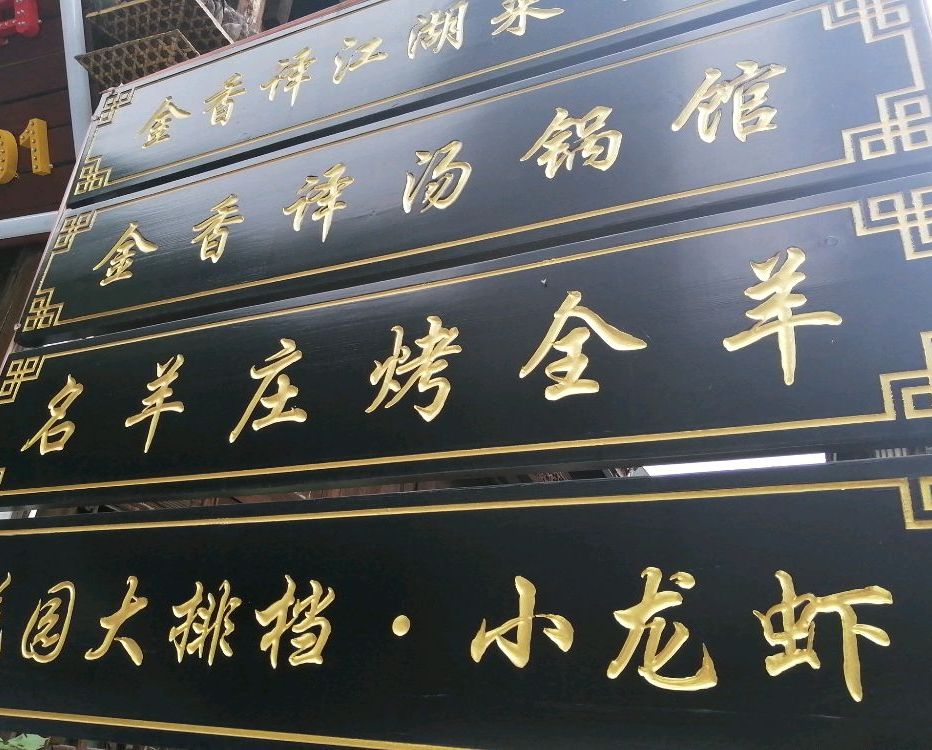 金香译江湖菜
金香译汤锅馆
名羊庄烤全羊
园大排档·小龙虾
01